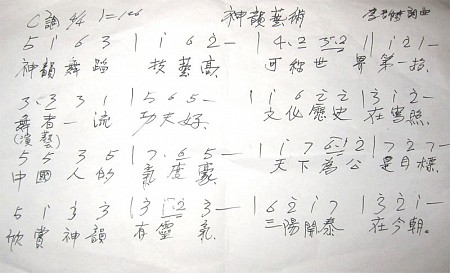 C調 4/4 ♩=126 神韻藝術 李 詞曲
5 i 6 3 | 1 i 6 2 — | 4. 2 3. 2 | 1 i 2 1 — |
神韻舞蹈 技藝高. 可稱世界第一招.
3. 3 3 1 | 5 6 5 — | 1 i 6 2 2 | 3 i 2 — |
舞者一流 功夫好. 文化歷史 在寫照.
(演藝)
5 5 3 5 | 7. 6 5 — | 1 i 7 6 i 2 | 7 2 7 — |
中國人的 氣度豪. 天下為公 是目標.
5 i 3 3 | 3 i 2 3 — | 6 2 i 7 | 3 2 i — |
欣賞神韻 有靈氣. 三陽開泰 在今朝.